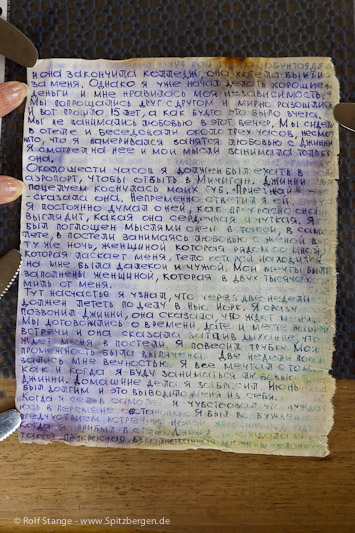 и она закончила колледж, она хотела выйти
за меня. Однако я уже начал делать хорошие
деньги и мне нравилась моя независимость.
Мы попрощались друг с другом и мирно разошлись
И вот прошло 15 лет, а как будто это было вчера.
Мы не занимались любовью в этот вечер. Мы сидели
в отеле и беседовали около трех часов, несмо
что, я намеривался заняться любовью с Джинни
Я смотрел на нее и мои мысли занимала только
она.
Около шести часов я должен был ехать в
аэропорт, чтобы отбыть в Мичиган. Джинни
поцелуем коснулась моих губ. Приезжай
- сказала она. Непременно ответил я ей.
Я постоянно думал о ней, как прекрасно она
выглядит, какая она сердечная и чуткая. Я
был поглощен мыслями о ней в такси, в само
лете, в постели занимаясь любовью с женой в
ту же ночь, женщиной которая рядом со мной,
которая ласкает меня, тело которой находится
на мне была далекой и чужой. Мои мечты были
заполнены женщиной, которая в двух тысячах
миль от меня.
Тут настасье я узнал, что через две недели
должен лететь по делу в Нью Йорк. Я сразу
позвонил Джинни, она сказала, что ждет меня.
Мы договорились о времени, дате и месте нашей
встречи и она сказала затаив дыхание, что
ждет меня в постели. Я повесил трубку. Моя
промежность была выпячена. Две недели пока
зались мне вечностью. Я все мечтал о том
как и когда я буду заниматься любовью с
Джинни. Домашние дела я забросил. Июнь
был долгим и это выводило меня из себя.
Когда я сел в самолет я чувствовал что нужда
Я был возбужден
предчувствием встречи
Когда я прибыл в отель
© Rolf Stange - www.Spitzbergen.de